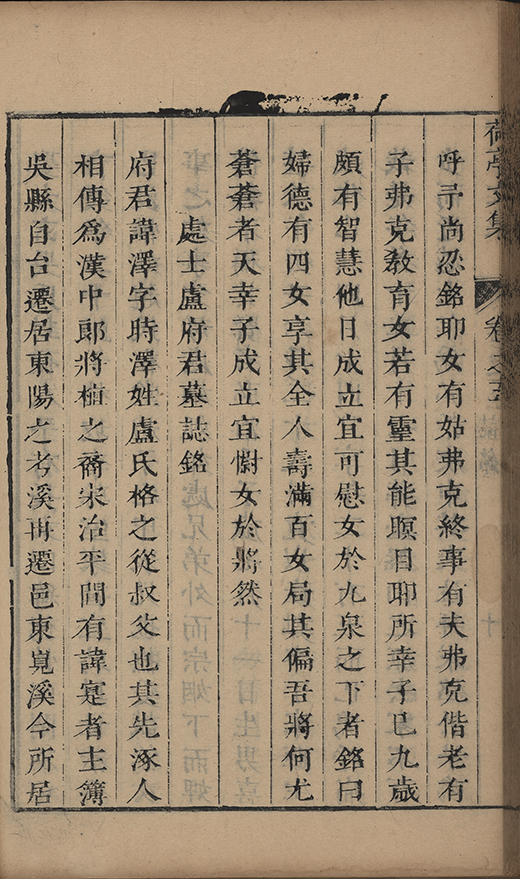 荷亭文集 卷之五
呼予尚忍銘耶女有姑弗克終事有夫弗克偕老有
子弗克敎育女若有靈其能瞑目耶所幸子巳九歲
頗有智慧他日成立宜可慰女於九泉之下者銘曰
婦德有四女享其全人壽滿百女局其偏吾將何尤
蒼蒼者天幸子成立宜慰女於將然
處士盧府君墓誌銘
府君諱澤字時澤姓盧氏格之從叔父也其先涿人
相傳爲漢中郎將植之裔宋治平間有諱寔者主簿
吳縣自台遷居東陽之考溪再遷邑東峴溪今所居